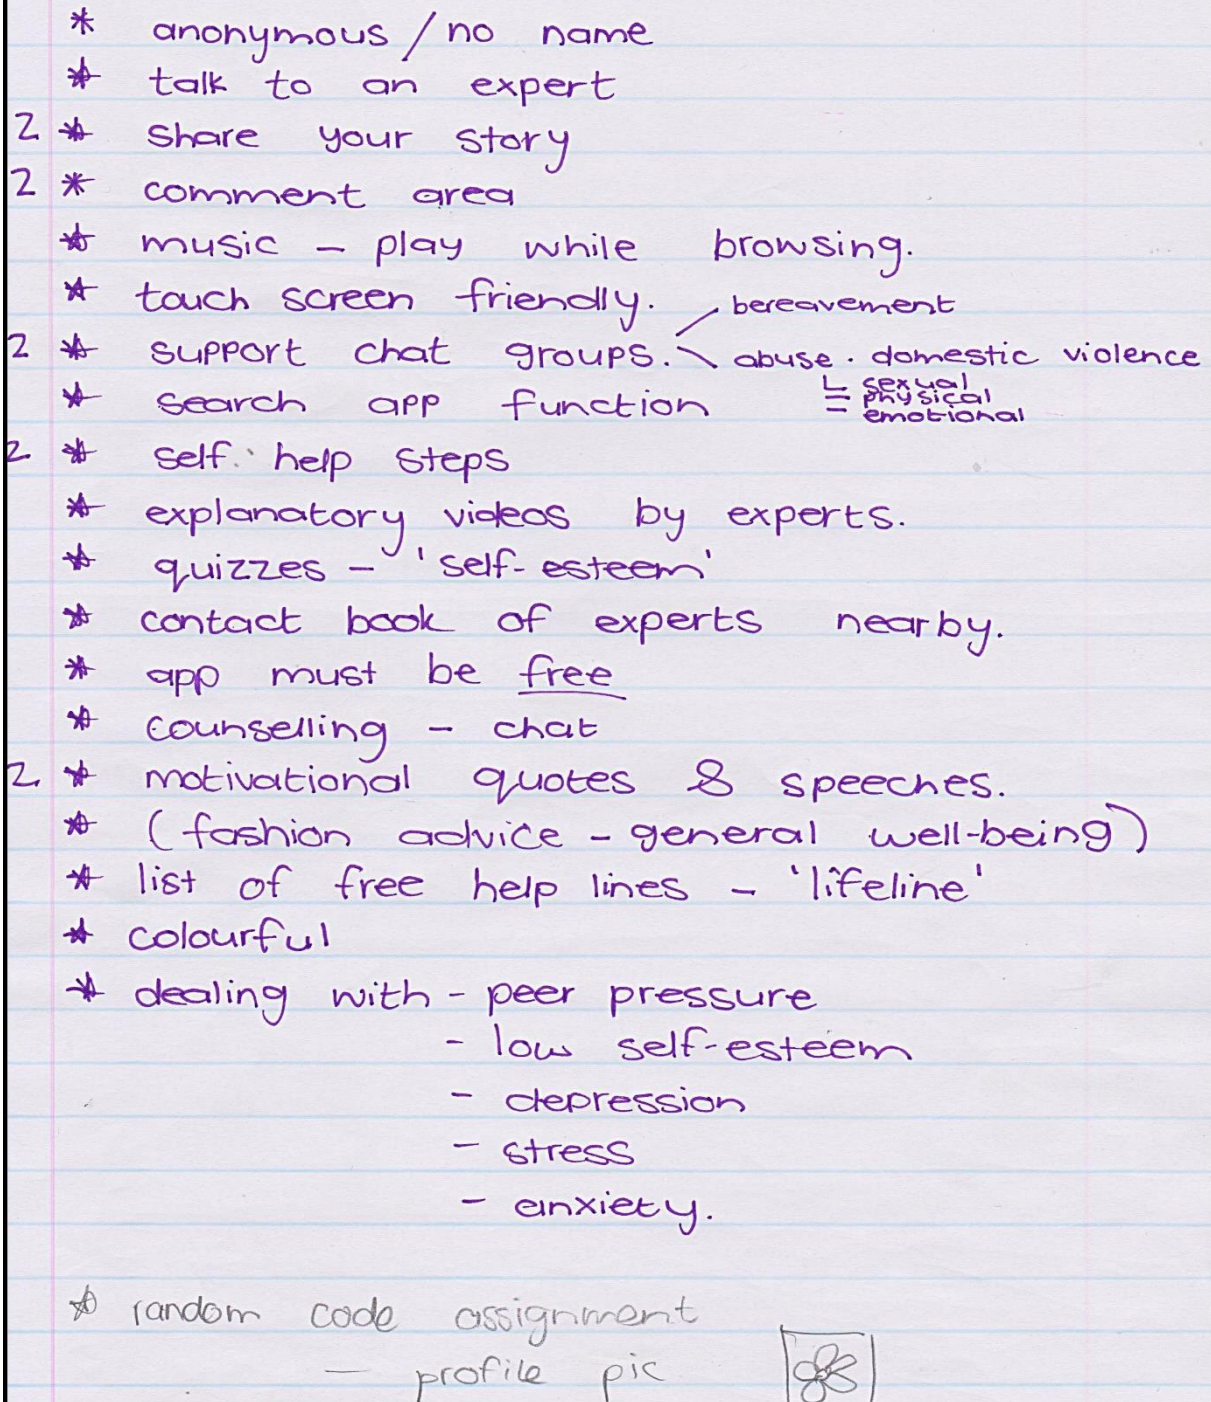 * anonymous / no name
* talk to an expert
2 * share your story
2 * comment area
* music – play while browsing.
* touch screen friendly.
bereavement
2 * support chat groups. abuse. domestic violence
sexual
physical
* search app function
emotional
2. * self. help steps
* explanatory videos by experts.
* quizzes – 'self-esteem'
* contact book of experts nearby.
* app must be free
* counselling – chat
2. * motivational quotes & speeches.
* (fashion advice – general well-being)
* list of free help lines – 'lifeline'
* colourful
* dealing with - peer pressure
- low self-esteem
- depression
- stress
- anxiety.
* random code assignment
— profile pic